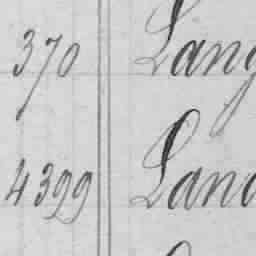 370 Lang
4399 Land